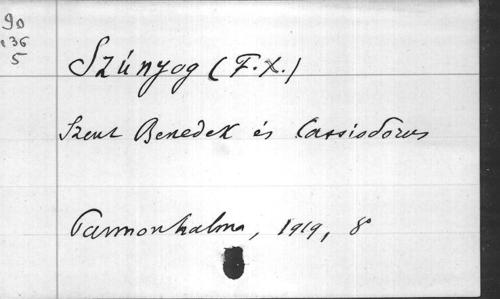 90
136
5
Szúnyog (F. X.)
Szent Benedek és Cassiodorus
Pannonhalma, 1919, 8°